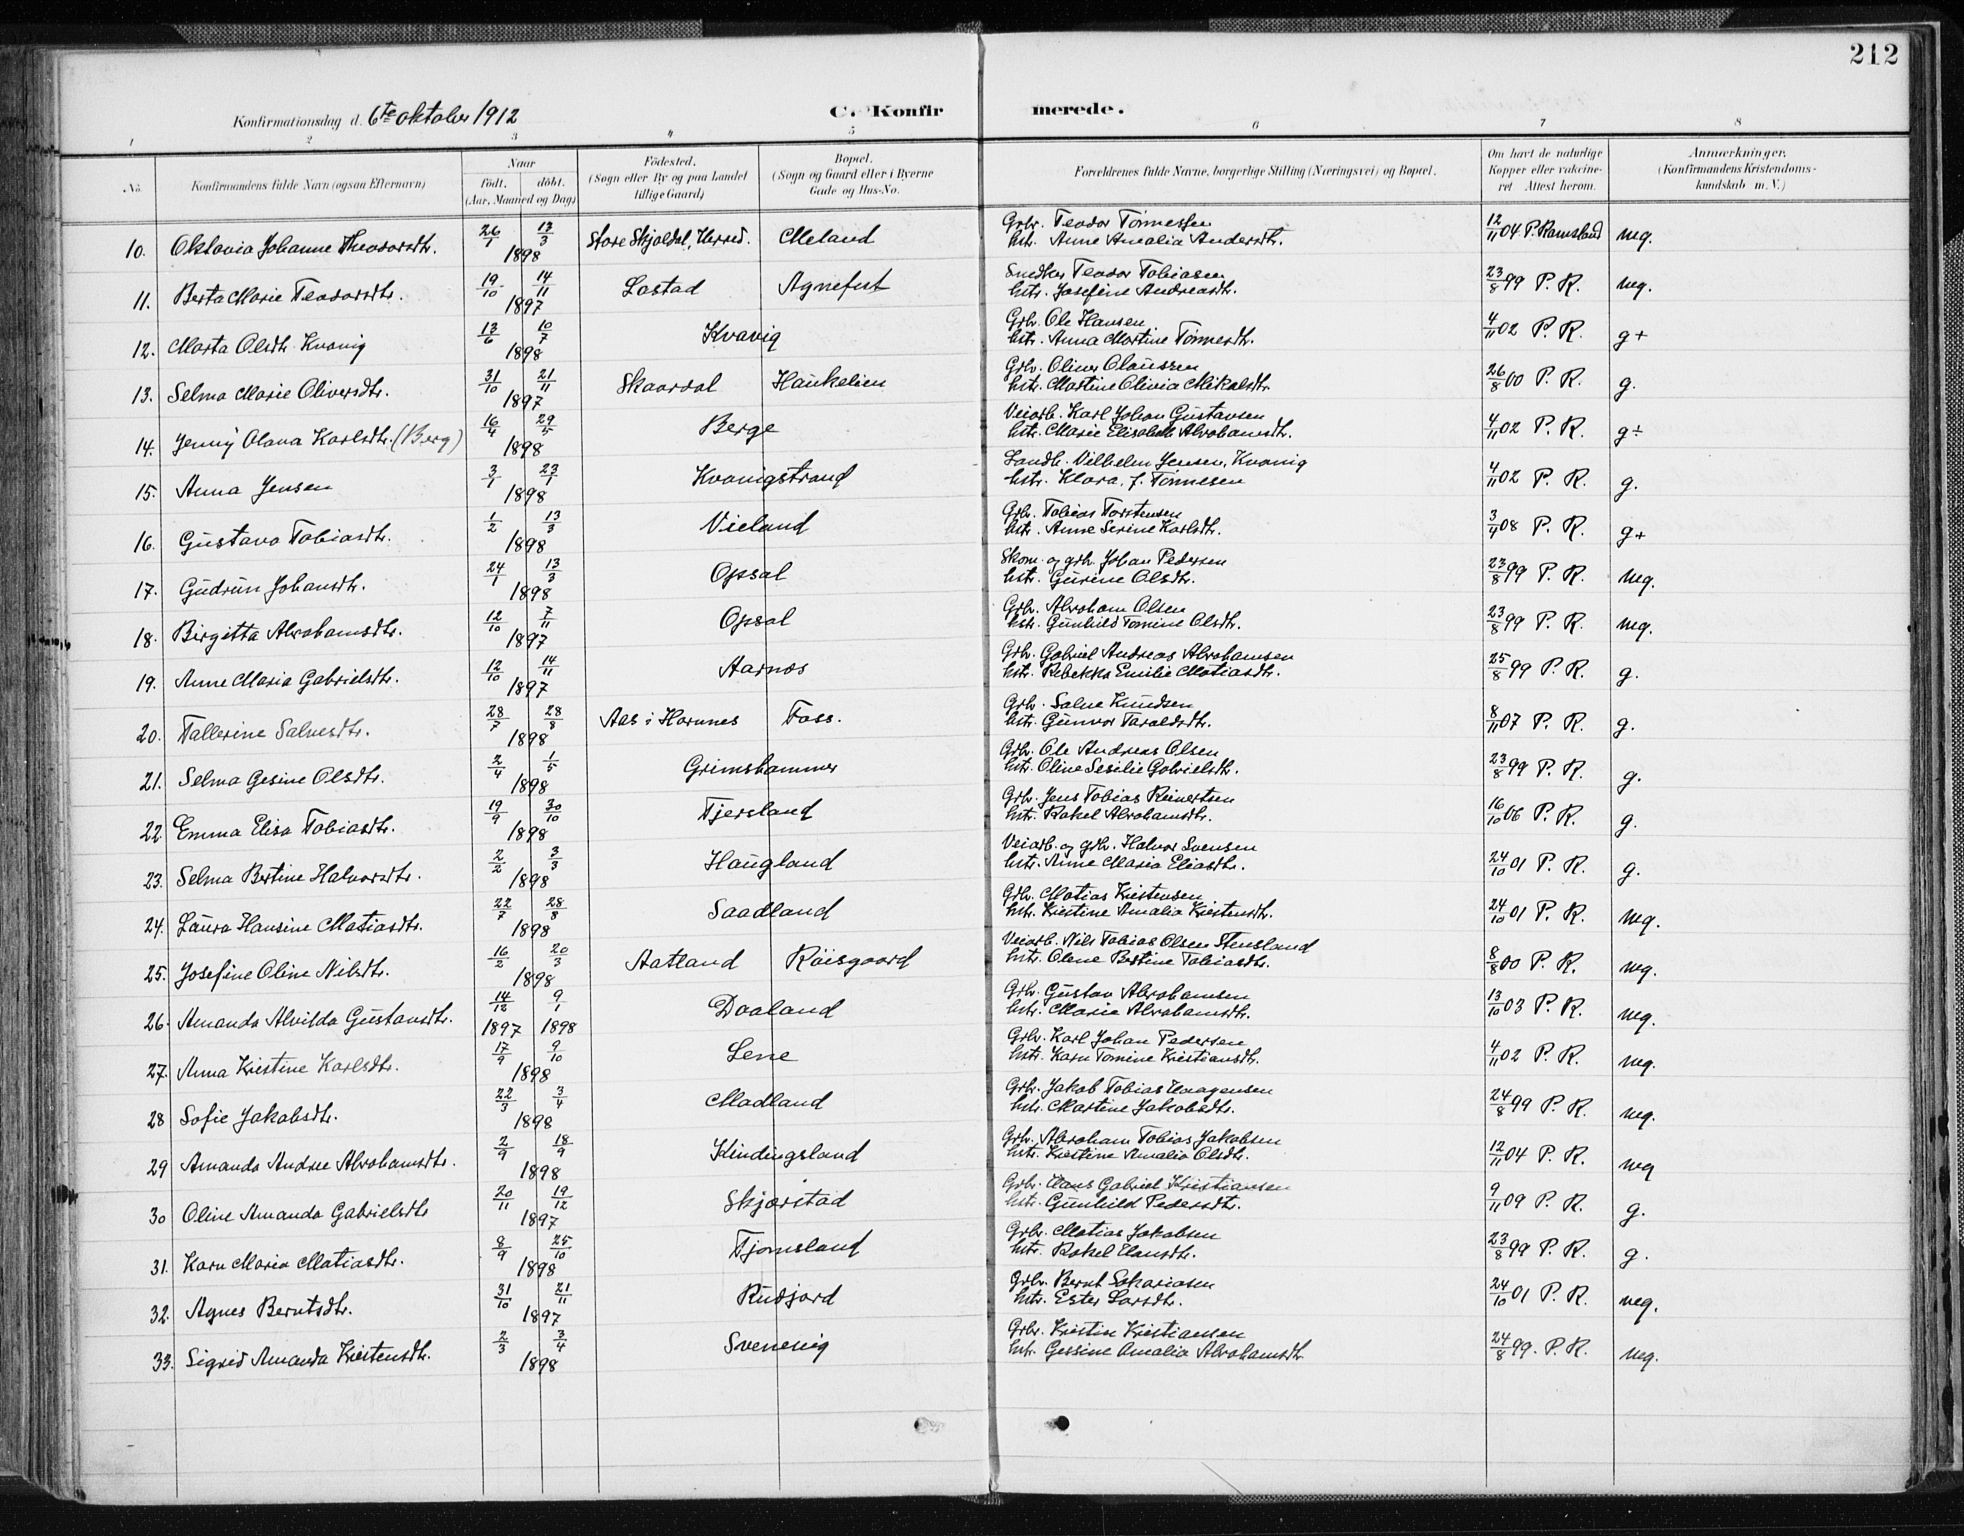 212
Konfirmationsdag d. 6te oktober 1912 C. Konfir merede.
1 2 3 4 5 6 7 8
No. Konfirmandens fulde Navn (ogsaa Efternavn) Naar født. døbt. (Aar, Maaned og Dag) Fødested. (Sogn eller By og paa Landet tillige Gaard) Bopæl. (Sogn og Gaard eller i Byerne Gade og Hus-No. Forældrenes fulde Navne, borgerlige Stilling (Næringsvei) og Bopæl. Om havt de naturlige Kopper eller vakcineret Attest herom. Anmærkninger. (Konfirmandens Kristendomskundskab m. V.)
10. Oktavia Johanne Theodorsdtr. 26/1 13/3 1898 Store Skjoldal, Herred. Meland Grbr. Teodor Tønnessen
hstr. Anne Amalia Andersdtr. 12/11 04 P. Ramsland meg.
11. Berta Marie Teodorsdtr. 19/10 14/11 1897 Lastad Agnefest Snedker Teodor Tobiasen
hstr. Josefine Andreasdtr. 23/8 99 P. R. meg.
12. Marta Olsdtr. Kvavig 13/6 10/7 1898 Kvavig Grbr. Ole Hansen
hstr. Anna Martine Tønnesdtr. 4/11 02 P. R. g+
13. Selma Marie Oliversdtr. 31/10 21/11 1897 Skaardal Haukelien Grbr. Oliver Olaussen
hstr. Martine Olivia Mikalsdtr. 26/8 00 P. R. g.
14. Jenny Olava Karlsdtr. (Berg) 16/4 29/5 1898 Berge Veiarb. Karl Johan Gustavsen
hstr. Marie Elisabeth Abrahamsdtr. 4/11 02 P. R. g÷
15. Anna Jensen 3/1 23/1 1898 Kvavigstrand Landh. Vilhelm Jensen, Kvavig
hstr. Klara, f. Tønnesen 4/11 02 P. R. g.
16. Gustava Tobiasdtr. 1/2 13/3 1898 Vieland Grb. Tobias Torstensen
hstr. Anne Serine Karlsdtr. 3/4 08 P. R. g+
17. Gudrun Johansdtr. 24/1 13/3 1898 Opsal Skom. og grb. Johan Pedersen
hstr. Gurine Olsdtr. 23/8 99 P. R. meg.
18. Birgitta Abrahamsdtr. 12/10 7/11 1897 Opsal Grbr. Abraham Olsen
hstr. Gunhild Tomine Olsdtr. 23/8 99 P. R. meg.
19. Anne Maria Gabrielsdtr. 12/10 14/11 1897 Aarnes Grbr. Gabriel Andreas Abrahamsen
hstr. Rebekka Emilie Matiasdtr. 25/8 99 P. R. g.
20. Tallerine Salvesdtr. 28/7 28/8 1898 Aas i Hornnes Foss. Grbr. Salve Knudsen
hstr. Gunvor Taraldsdtr. 8/11 07 P. R. g.
21. Selma Gesine Olsdtr. 2/4 1/5 1898 Grimshammer Grbr. Ole Andreas Olsen
hstr. Oline Sesilie Gabrielsdtr. 23/8 99 P. R. g.
22 Emma Elisa Tobiasdtr. 19/9 30/10 1898 Fjersland Grbr. Jens Tobias Reinertsen
hstr. Rakel Abrahamsdtr. 16/10 06 P. R. g.
23. Selma Bertine Halvorsdtr. 2/2 3/3 1898 Haugland Veiarb. og grb. Halvor Svensen
hstr. Anne Maria Eliasdtr. 24/10 01 P. R. g.
24. Laura Hansine Matiasdtr. 22/7 28/8 1898 Saadland Grbr. Matias Kristensen
hstr. Kirstine Amalia Kristensdtr. 24/10 01 P. R. meg.
25. Josefine Oline Nilsdtr. 16/2 20/3 1898 Aatland Röisgaard Veiarb. Nils Tobias Olsen Stensland
hstr. Olene Bertine Tobiasdtr. 8/8 00 P. R. meg.
26. Amanda Alvilda Gustavsdtr. 14/12 9/1 1897 1898 Daaland Grbr. Gustav Abrahamsen
hstr. Marie Abrahamsdtr. 13/10 03 P. R. meg.
27. Anna Kristine Karlsdtr. 17/9 9/10 1898 Lene Grbr. Karl Johan Pedersen
hstr. Karn Tomine Kristiansdtr. 4/11 02 P. R. meg.
28 Sofie Jakobsdtr. 22/3 3/4 1898 Madland Grbr. Jakob Tobias Haagensen
hstr. Martine Jakobsdtr. 24/8 99 P. R. meg.
29 Amanda Andree Abrahamsdtr. 2/9 18/9 1898 Kindingsland Grbr. Abraham Tobias Jakobsen
hstr. Kristine Amalia Olsdtr. 12/11 04 P. R. meg
30 Oline Amanda Gabrielsdtr 20/11 19/12 1897 Skjørstad Grbr. Hans Gabriel Kristiansen
hstr. Gunhild Pedersdtr. 9/11 09 P. R. g.
31. Karn Maria Matiasdtr. 8/9 25/10 1898 Tjomsland Grbr. Matias Jakobsen
hstr. Rakel Hansdtr. 23/8 99 P. R. g.
32. Agnes Berntsdtr. 31/10 21/11 1897 Rudjord Grbr. Bernt Sakariasen
hstr. Ester Larsdtr. 24/10 01 P. R. meg.
33. Sigrid Amanda Kristensdtr. 2/3 3/4 1898 Svenevig Grbr. Kristen Kristiansen
hstr. Gessine Amalia Abrahamsdtr 24/8 99. P. R. meg.